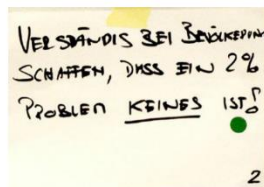 VERSTÄNDIS BEI BEVÖLKERUN
SCHAFFEN, DASS EIN 2%
PROBLEM KEINES IST!
2